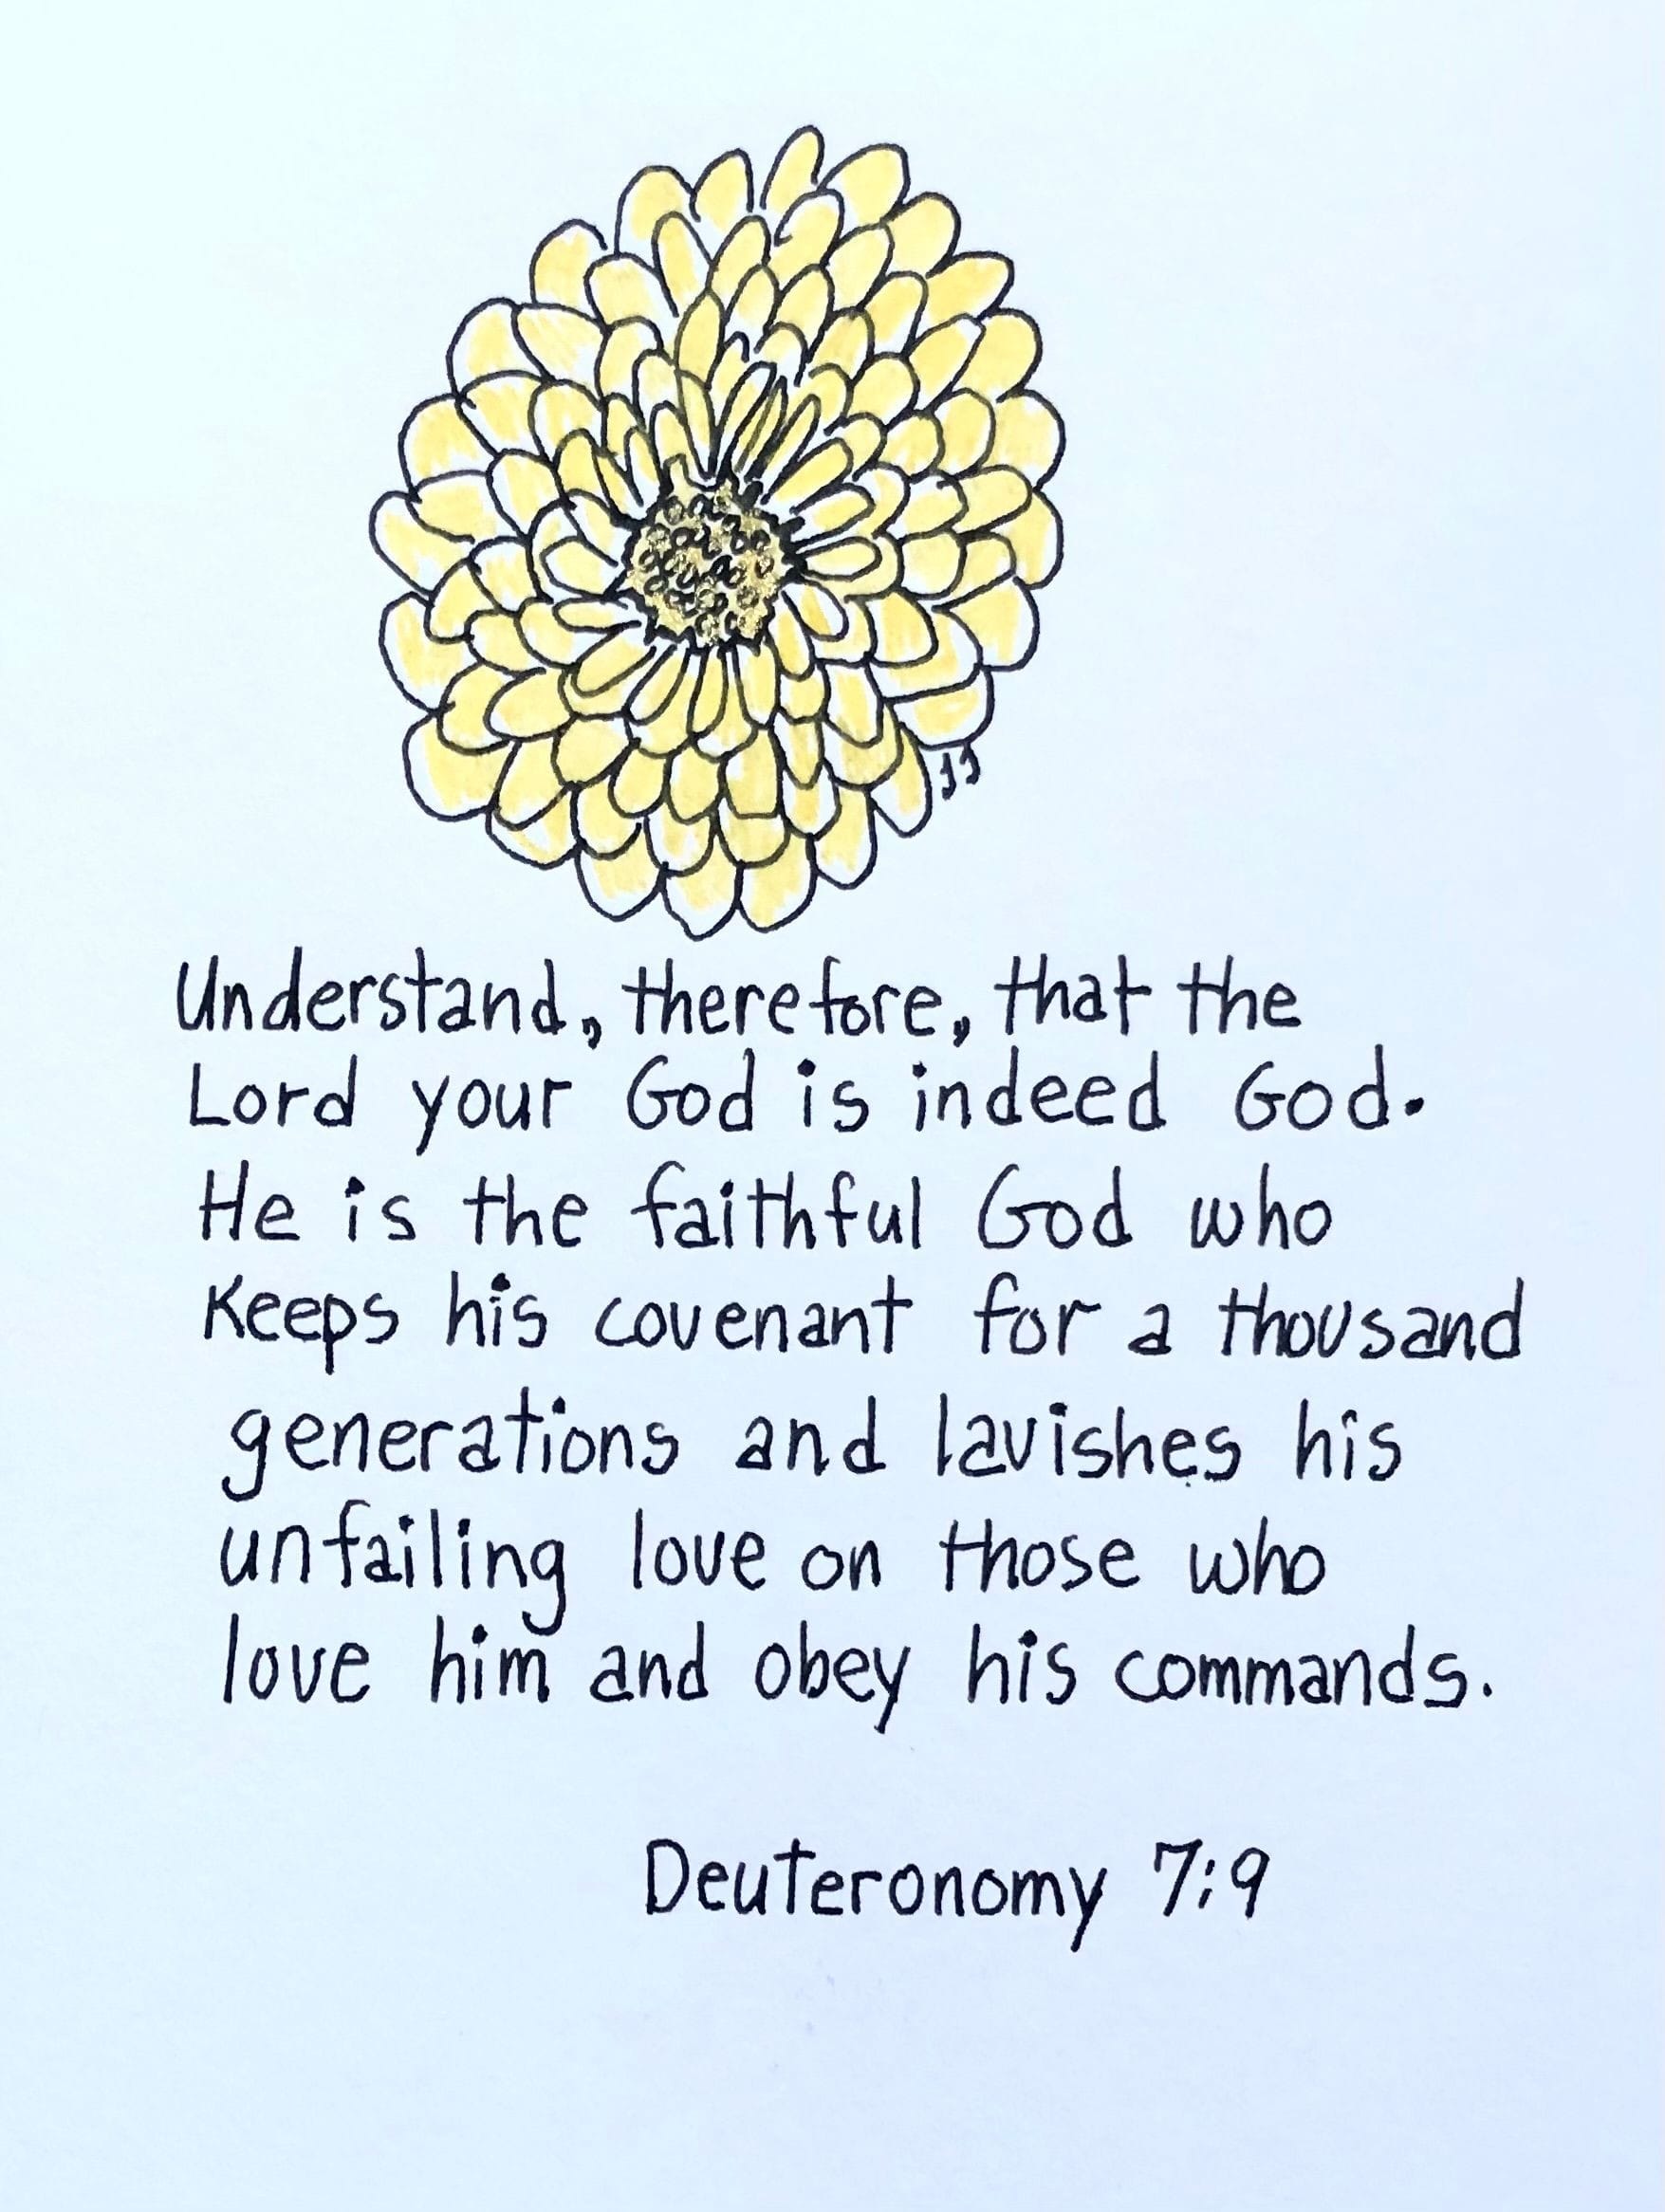 JJ
Understand, therefore, that the
Lord your God is indeed God.
He is the faithful God who
keeps his covenant for a thousand
generations and lavishes his
unfailing love on those who
love him and obey his commands.
Deuteronomy 7:9